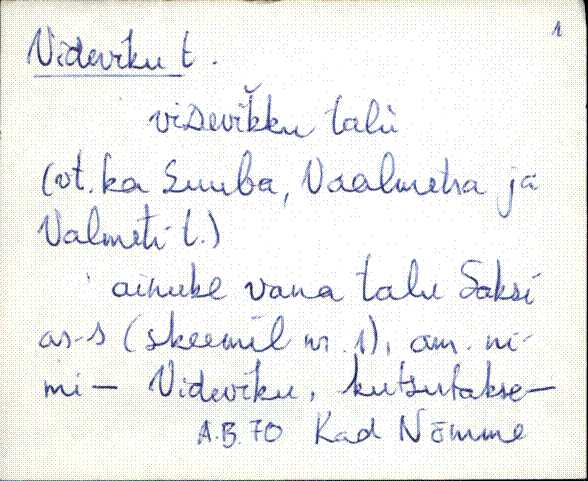 1
Videviku t.
viᴅevĭkku talù
(vt. ka Suuba, Vaalmetsa ja
Valmeti t.)
ainuke vana talu Saksi
as-s (skeemil nr. 1), am. ni-
mi — Videviku, kutsutakse—
A.B. 70 Kad Nõmme